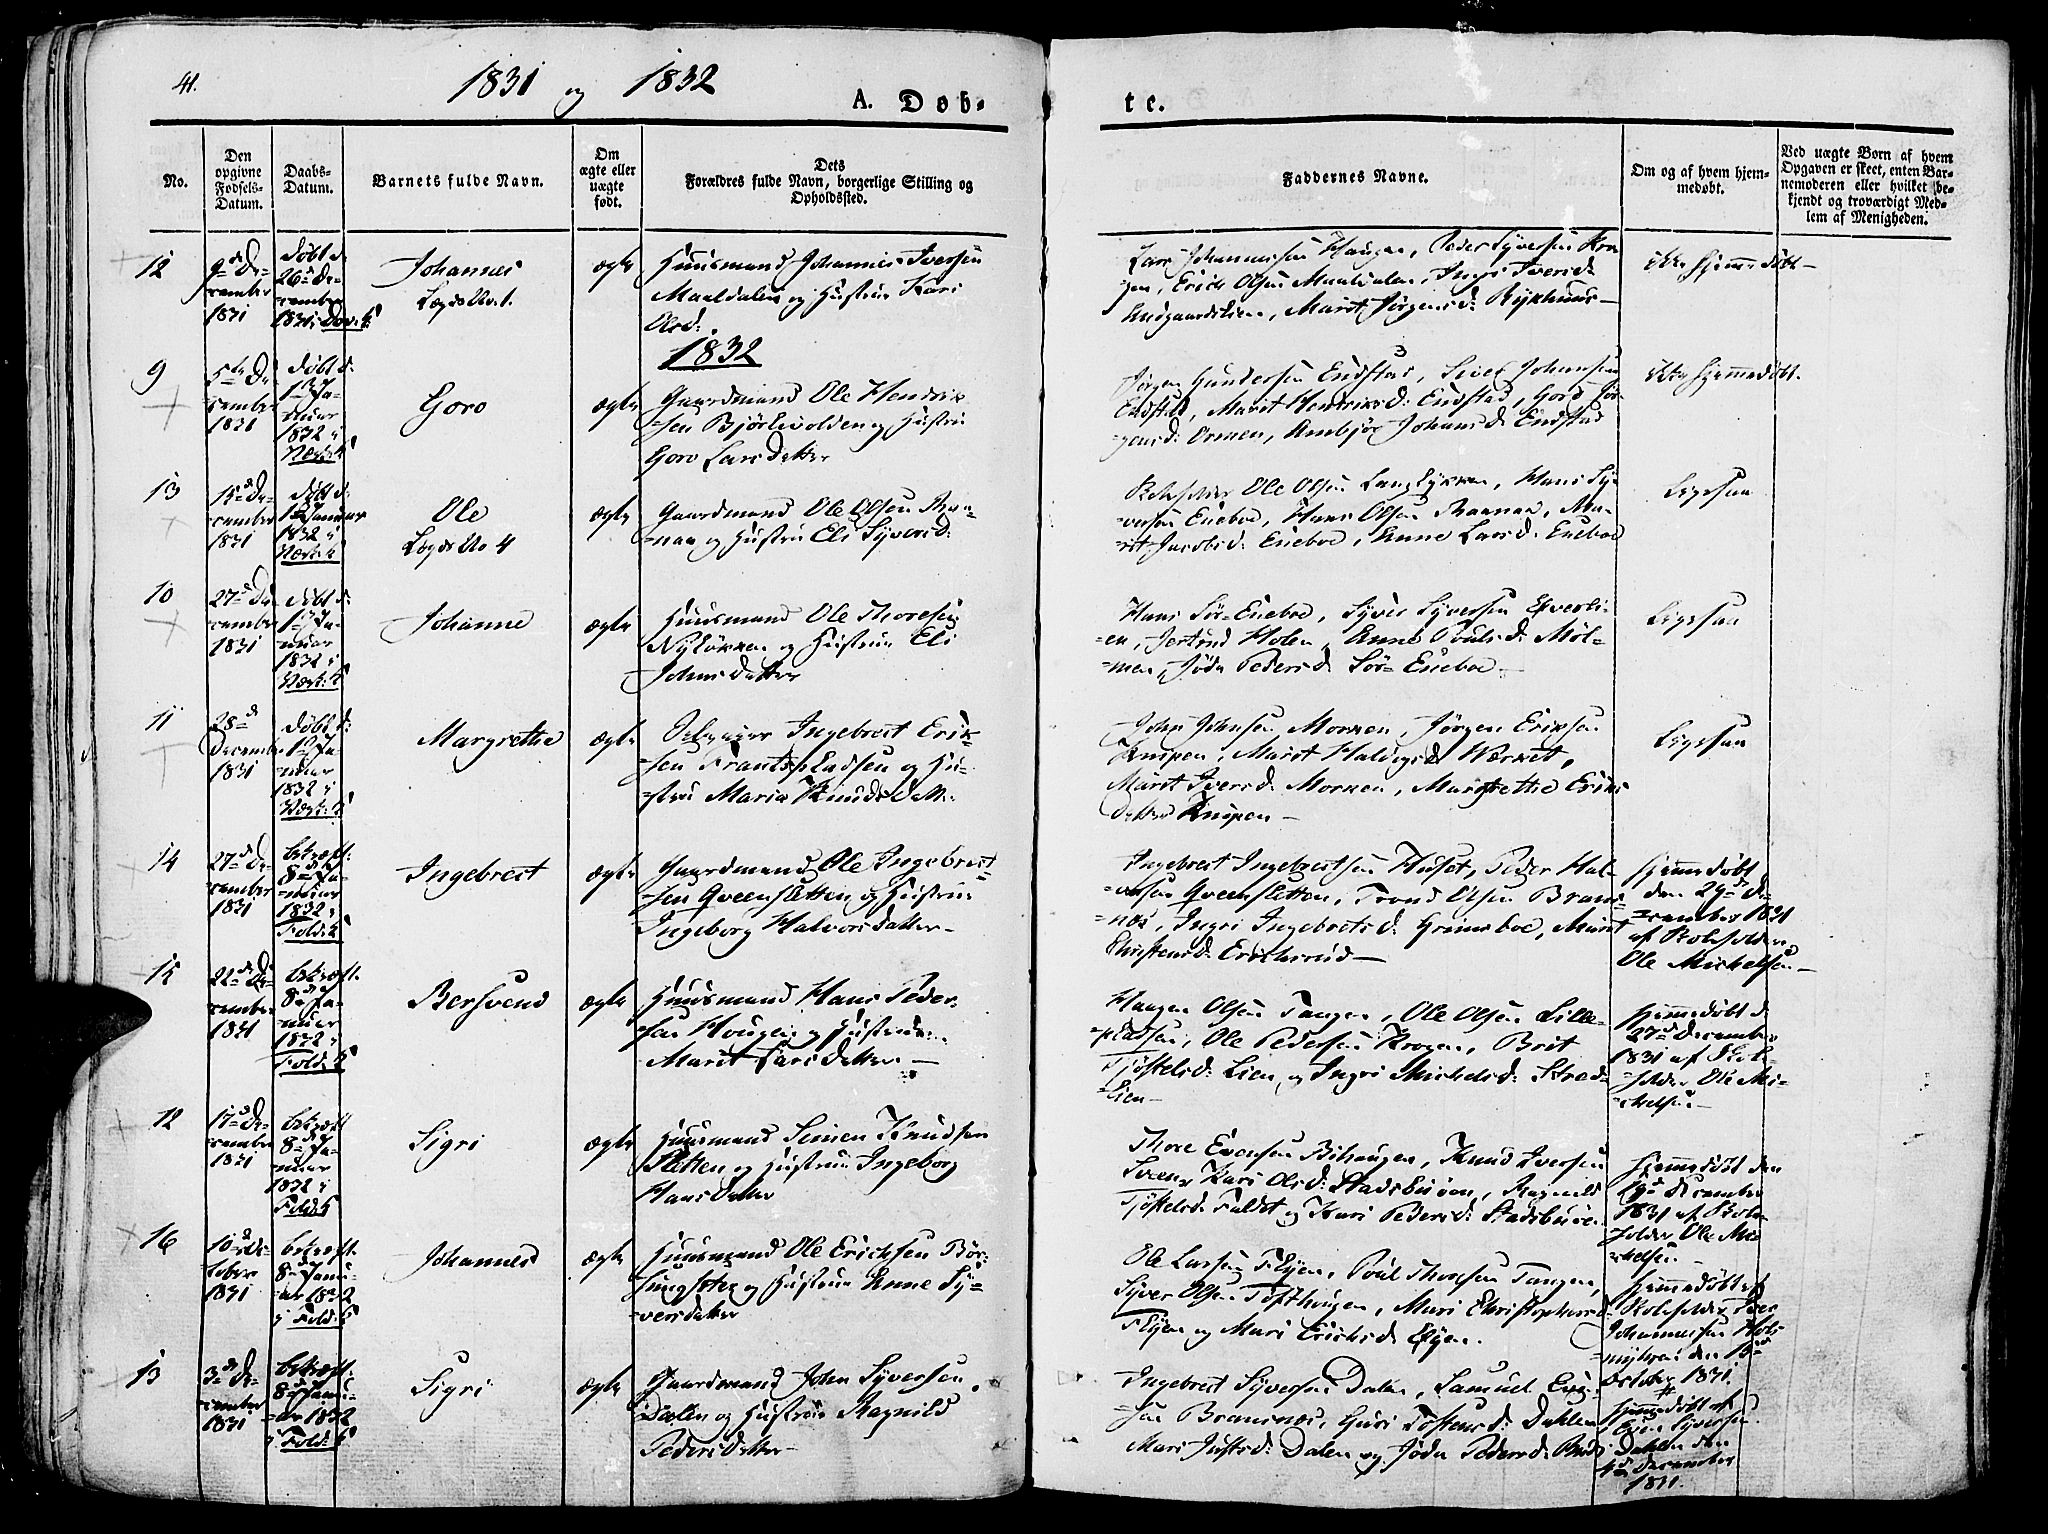 41.
1831 og 1832
A. Døb-
te.
No.
Den opgivne Fødsels-Datum.
Daabs-Datum.
Barnets fulde Navn.
Om ægte eller uægte født.
Dets
Forældres fulde Navn, borgerlige Stilling og
Opholdssted.
Faddernes Navne.
Om og af hvem hjem-
medøbt.
Ved uægte Børn af hvem
Opgaven er skeet, enten Bar-
nemoderen eller hvilket be-
kjendt og troværdigt Med-
lem af Menigheden.
12
9de De-
cember
1831
døbt d:
26de De-
cember
1831 i Dov: K
Johannes
Lægds No. 1.
ægte
Huusmand Johannes Iversen
Maaldalen og Hustrue Kari
Olsd:
Lars Johannesen Haugen, Peder Syversen Kro
gen, Erich Olsen Maaldalen, Ingri Iversd:
Lindgaardslien, Marit Jørgensd: Rykhuus
ikke Hjemmedøbt
1832
9
5te De
cember
1831
døbt d:
1ste Ja-
nuar
1832 i
Næsk: K
Goro
ægte
Gaardmand Ole Hendrik
sen Bjørlivolden og Hustru
Goro Larsdatter
Jørgen Gundersen Endstad, Siver Johansen
Endstad, Marit Hendriksd: Endstad, Goro Jør-
gensd: Ormen, Ambjør Johansd: Endstad
ikke Hjemmedøbt.
13
15de De-
cember
1831
døbt d:
1ste Januar
1832 i
Næsk: K
Ole
Lægds No 4
ægte
Gaardmand Ole Olsen
og Hustru Eli Syversd:
Kirkesanger Ole Olsen Langløkken, Hans Sy-
versen Eneboe, Hans Olsen Raanaa, Ma-
rit Jacobsd: Eneboe, Anne Larsd: Eneboe
Ligesaa
10
27de De
cember
1831
døbt d:
1ste Ja-
nuar
1832 i
Næsk: K
Johanne
ægte
Huusmand Ole Thoresen
Nyløkken og Hustrue Eli
Johnsdatter
Hans Sør-Eneboe, Syver Syversen
en, Jertrud Holen, Anne Poulsd: Møl-
men, Jøda Pedersd: Sør-Eneboe
Ligesaa
11
28de
December
1831
døbt d:
1ste Ja-
nuar
1832 i
Næsk: K
Margrethe
ægte
Ingebrect Erik-
sen Frantspladsen og Hu-
stru Maria Knudsdatter
John Johnsen Morken, Jørgen Eriksen
Knipen, Marit Halvorsd: Werket,
Marit Iversd: Morken, Margrethe Eriks
datter Knipen
Ligesaa
14
27de De-
cember
1831
bekræft:
8de Ja-
nuar
1832 i
Fold: K
Ingebrect
ægte
Gaardmand Ole Ingebrect
sen Qveensletten og Hustrue
Ingeborg Halvorsdatter
Ingebrect Ingebrectsen Huset, Peder Hal-
vorsen Qveensletten, Trond Olsen Bræn-
næs, Ingri Ingebretsd: Grimsboe, Marit
Christensd: Erichsrud
Hjemmedøbt
den 29de De-
cember 1831
af Skoleholder
Ole Michelsen
15
22de De-
cember
1831
bekræft.
8de Ja-
nuar
1832 i
Fold: K
Bersvend
ægte
Huusmand Hans Peder-
sen Hougen og Hustrue
Marit Larsdatter
Haagen Olsen Tangen, Ole Olsen Lille-
pladsen, Ole Pedersen Krogen, Brit
Tjøstelsd: Lien og Ingri Michelsd: Stred-
Lien
Hjemmedøbt d
27de December
1831 af Skole-
holder Ole Mi-
chelsen
12
17de De-
cember
1831
bekræft
8de Ja-
nuar
1832 i
Fold: K
Sigri
ægte
Huusmand Simen Knudsen
Sletten og Hustrue Ingeborg
Hansdatter
Thore Evensen Bihaugen, Knud Iversen
Sveen, Kari Olsd: Stadsbuøen, Ragnild
Tjøstelsd: Faldet og Kari Pedersd: Stadsbuøen
Hjemmedøbt den
19de December
1831 af Skole-
holder Ole Mi-
chelsen
16
10de Oc-
tober
1831
bekræft.
8de Janu-
ar 1832
i Fold: K
Johannes
ægte
Huusmand Ole Erichsen Bør-
og Hustrue Anne Sy-
versdatter
Ole Larsen Flyen, Poul Thoresen Tangen,
Syver Olsen Tofthougen, Mari Christophersd:
Flyen og Mari Erichsd: Flyen.
Hjemmedøbt af
Skoleholder Iver
Johannesen
den 13de
October 1831.
13
3de De-
cember
1831
bekræft.
8de Janu-
ar 1832
i Fold: K
Sigri
ægte
Gaardmand John Syversen
Dalen og Hustrue Ragnild
Pedersdatter
Ingebrect Syversen Dalen, Samuel
sen Brænnæs, Guri Tostensd: Dahlen
Mari Justsd: Dalen og Jøda Pedersd:
Hjemmedøbt af
Syversen
Dahlen den
4de December
1831.